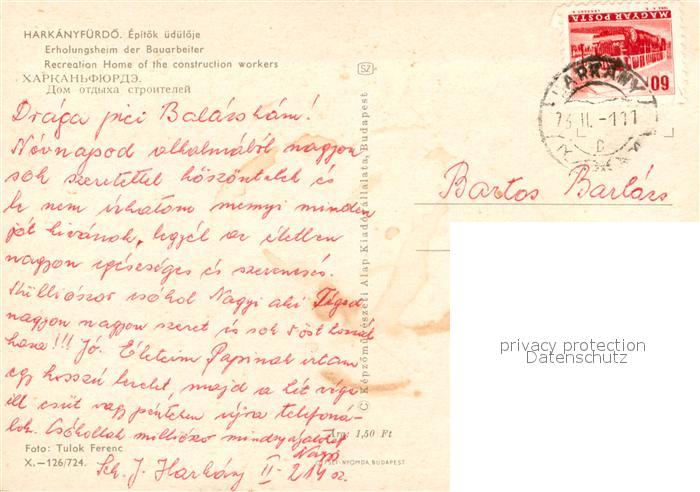 HARKÁNYFÜRDŐ. Építők üdülője
Erholungsheim der Bauarbeiter
Recreation Home of the construction workers
ХАРКАНЬФЮРДЭ.
Дом отдыха строителей
Drága pici Balázskám!
Névnapod alkalmából nagyon
sok szeretettel köszöntelek és
le nem írhatom mennyi minden
jót kívánok, legyél az életben
nagyon egészséges és szerencsés.
csókol Nagyi aki Téged
nagyon nagyon szeret és sok
!!! Jó. Papinak írtam
egy hosszú levelet, majd a hét vége
csüt vagy pénteken újra telefoná-
lok. Csókollak milliószor mindnyájatokat
Nagyi
J. Harkány II-
Foto: Tulok Ferenc
X.—126/724.
Ára: 1,50 Ft
NYOMDA, BUDAPEST
SZ
© Képzőművészeti Alap Kiadóvállalata, Budapest
MAGYAR POSTA
60
HARKÁNY
73 II.
Bartos
privacy protection
Datenschutz